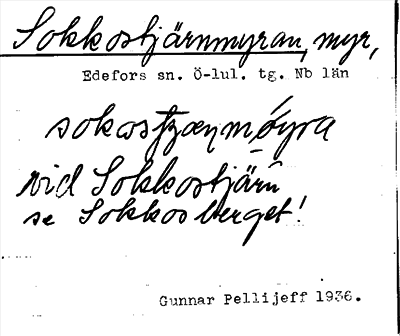 Sokkostjärnmyran, myr,
Edefors sn. Ö-lul. tg. Nb län
vid Sokkostjärn
se Sokkosberget!
Gunnar Pellijeff 1936.